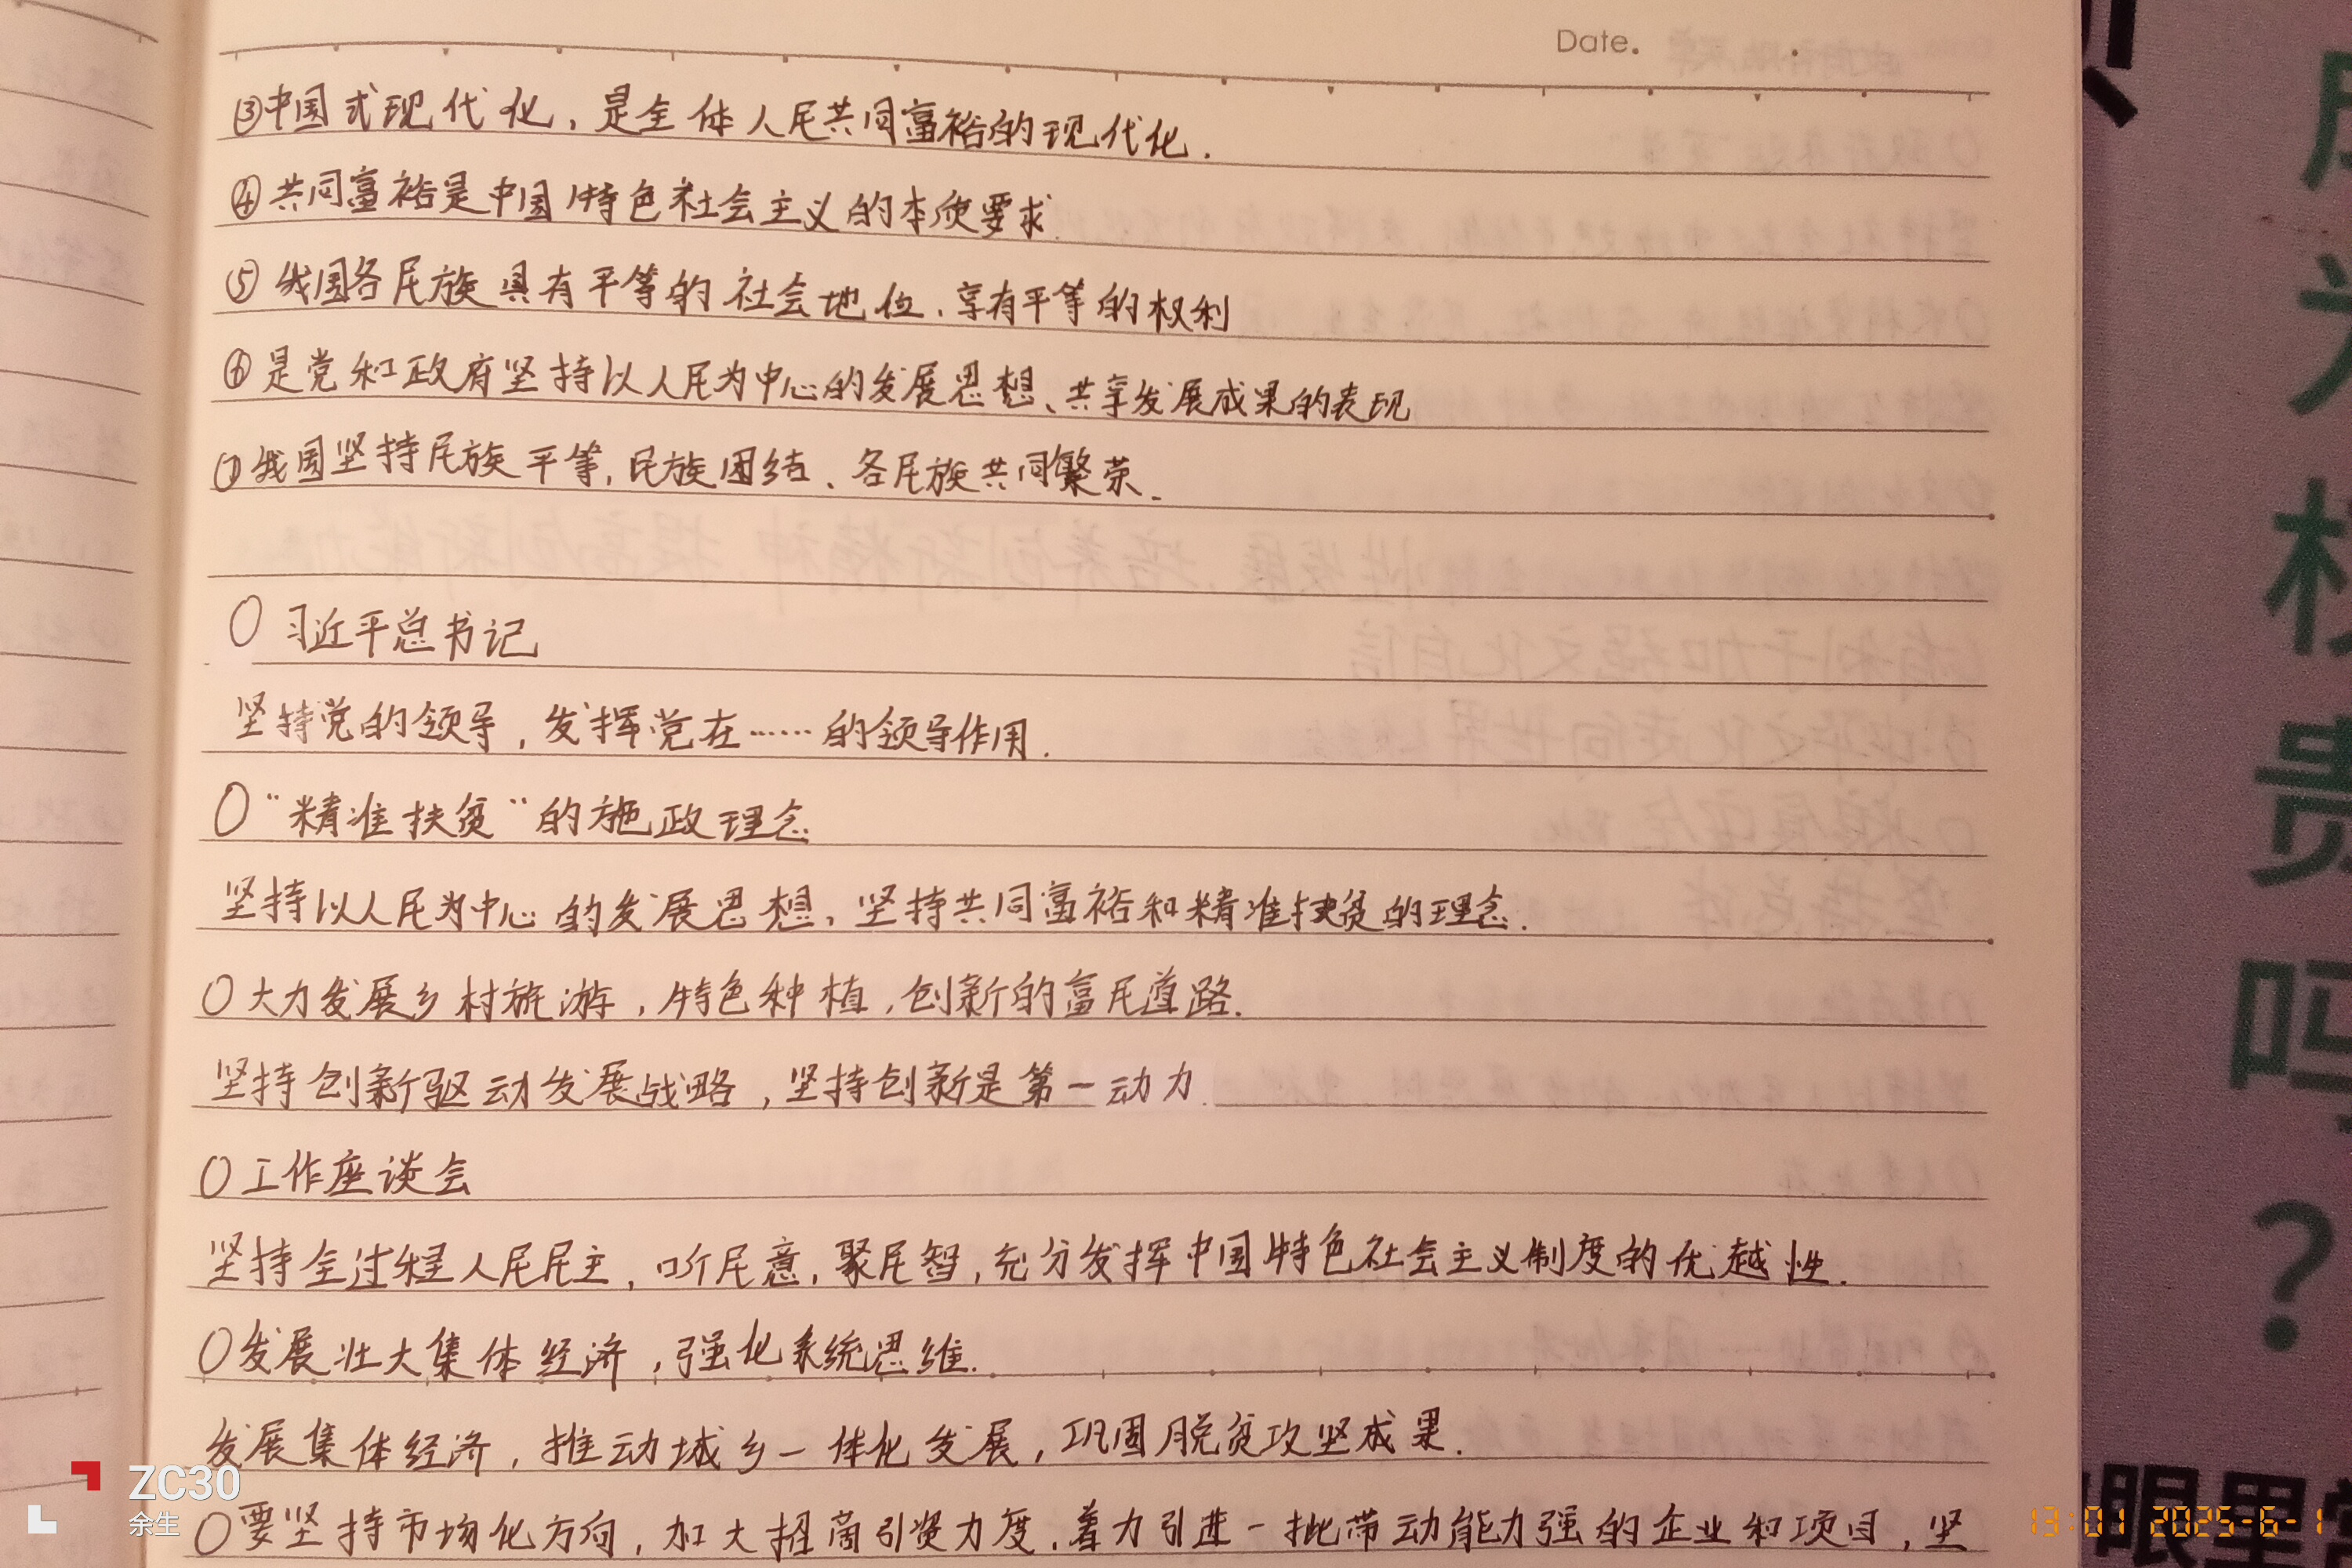 Date.
③中国式现代化，是全体人民共同富裕的现代化.
④共同富裕是中国特色社会主义的本质要求.
⑤我国各民族具有平等的社会地位、享有平等的权利
⑥是党和政府坚持以人民为中心的发展思想、共享发展成果的表现
⑦我国坚持民族平等,民族团结、各民族共同繁荣.
○ 习近平总书记
坚持党的领导，发挥党在……的领导作用.
○"精准扶贫"的施政理念
坍持以人民为中心的发展思想，坚持共同富裕和精准扶贫的理念.
○大力发展乡村旅游，特色种植,创新的富民道路.
坚持创新驱动发展战略，坚持创新是第一动力.
○工作座谈会
坚持全过程人民民主，听民意,聚民智,充分发挥中国特色社会主义制度的优越性.
○发展壮大集体经济，强化系统思维.
发展集体经济，推动城乡一体化发展，巩固脱贫攻坚成果.
○要坚持市场化方向，加大招商引资力度，着力引进一批带动能力强的企业和项目，坚
为
权
贵
吗
?
眼里
ZC30
余生
13:01 2025-6-1